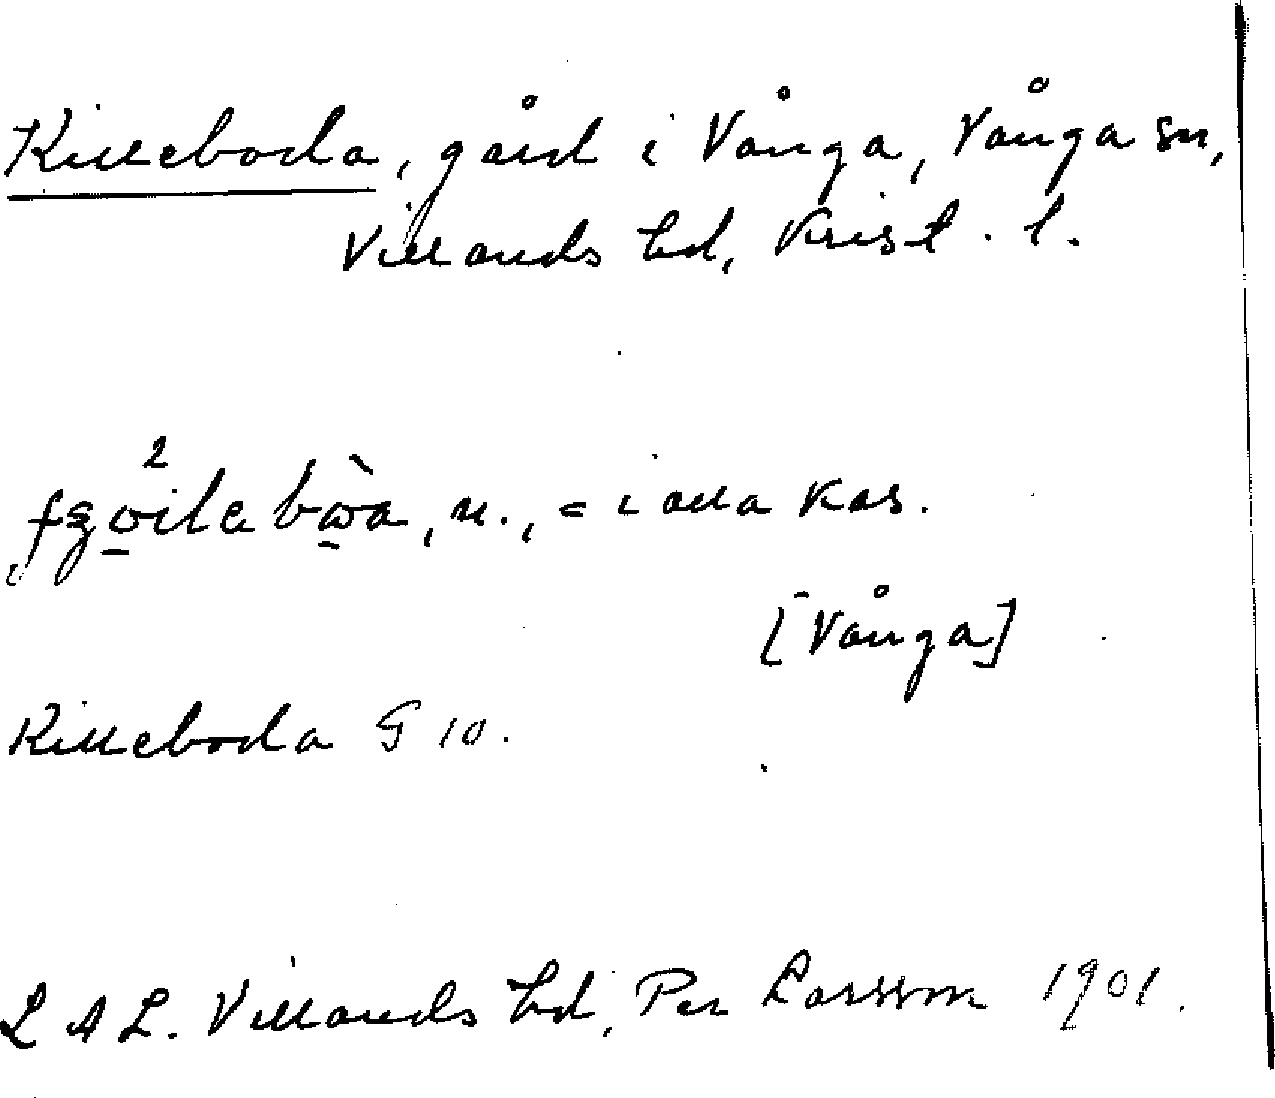 Killeboda, gård i Vånga, Vånga sn,
Villands hd, Krist. l.
n., = i alla kas.
[Vånga]
Killeboda G 10.
LAL. Villands hd, Per Larsson 1901.